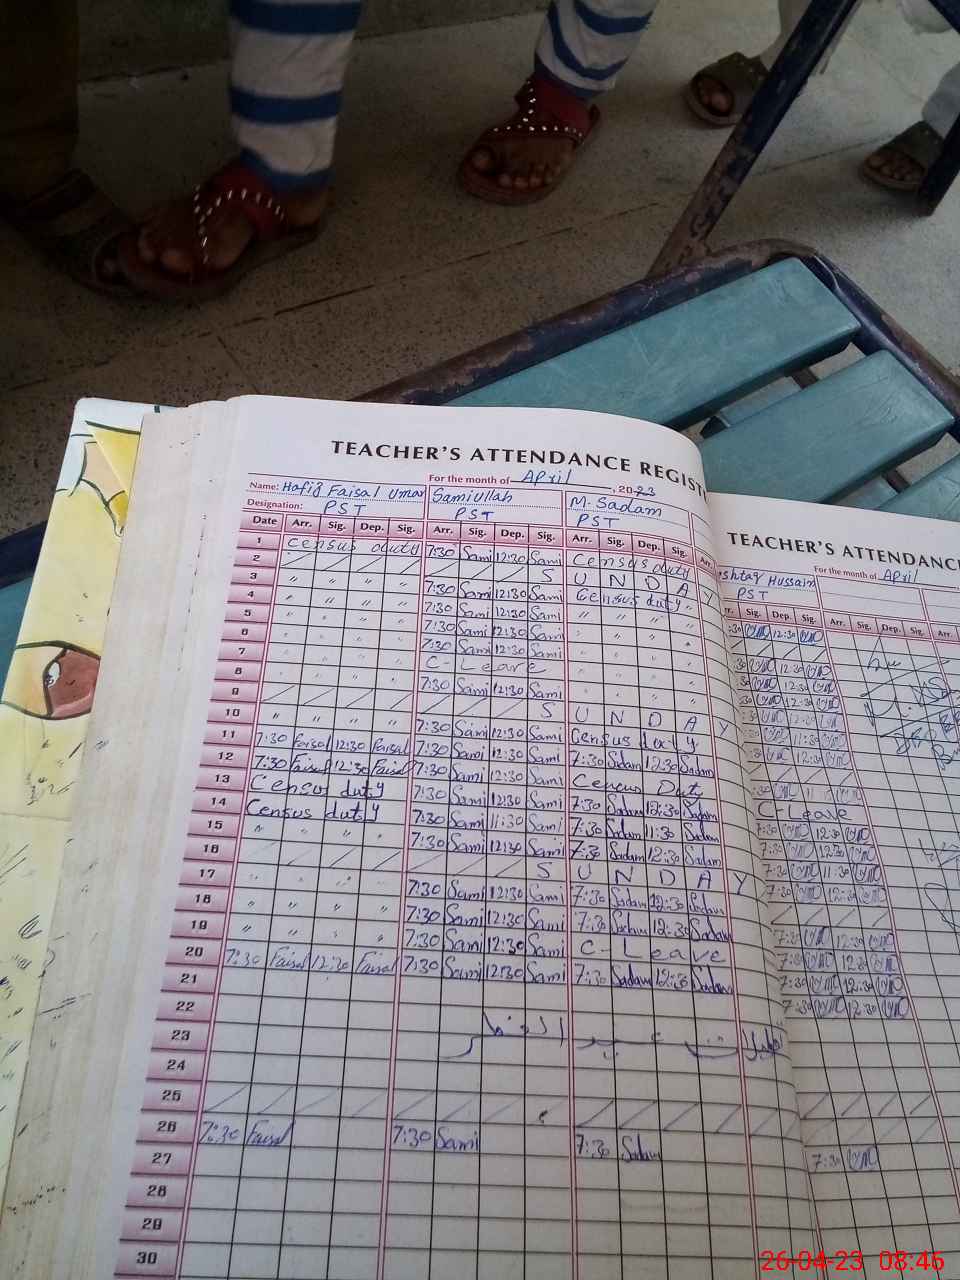 TEACHER'S ATTENDANCE REGIST
For the month of April, 2023
Name: Hafiz Faisal Umar Samiullah M. Sadam
Designation: PST PST PST
Date Arr. Sig. Dep. Sig. Arr. Sig. Dep. Sig. Arr. Sig. Dep. Sig. Arr.
1 Census duty 7:30 Sami 12:30 Sami Census duty
2 S U N D A Y
3 " " " " 7:30 Sami 12:30 Sami Census duty "
4 " " " " 7:30 Sami 12:30 Sami " " " "
5 " " " " 7:30 Sami 12:30 Sami " " " "
6 " " " " 7:30 Sami 12:30 Sami " " " "
7 " " " " C-Leave " " " "
8 " " " " 7:30 Sami 12:30 Sami " " " "
9 S U N D A Y
10 " " " " 7:30 Sami 12:30 Sami Census duty
11 7:30 Faisal 12:30 Faisal 7:30 Sami 12:30 Sami 7:30 Sadam 12:30 Sadam
12 7:30 Faisal 12:30 Faisal 7:30 Sami 12:30 Sami Census Duty
13 Census duty 7:30 Sami 12:30 Sami 7:30 Sadam 12:30 Sadam
14 Census duty 7:30 Sami 11:30 Sami 7:30 Sadam 11:30 Sadam
15 " " " " 7:30 Sami 12:30 Sami 7:30 Sadam 12:30 Sadam
16 S U N D A Y
17 " " " " 7:30 Sami 12:30 Sami 7:30 Sadam 12:30 Sadam
18 " " " " 7:30 Sami 12:30 Sami 7:30 Sadam 12:30 Sadam
19 " " " " 7:30 Sami 12:30 Sami C-Leave
20 7:30 Faisal 12:30 Faisal 7:30 Sami 12:30 Sami 7:30 Sadam 12:30 Sadam
21
22
23
24
25
26 7:30 Faisal 7:30 Sami 7:30 Sadam
27
28
29
30
TEACHER'S ATTENDANCE
For the month of April
shtaq Hussain
PST
Sig. Dep. Sig. Arr. Sig. Dep. Sig. Arr.
:30 12:30
:30 12:30
:30 12:30
:30 12:30
:30 12:30
:30 11:30
:30 12:30
C-Leave
7:30 12:30
7:30 12:30
7:30 11:30
7:30 12:30
7:30 12:30
7:30 12:30
7:30 12:30
7:30 12:30
7:30
26-04-23 08:46